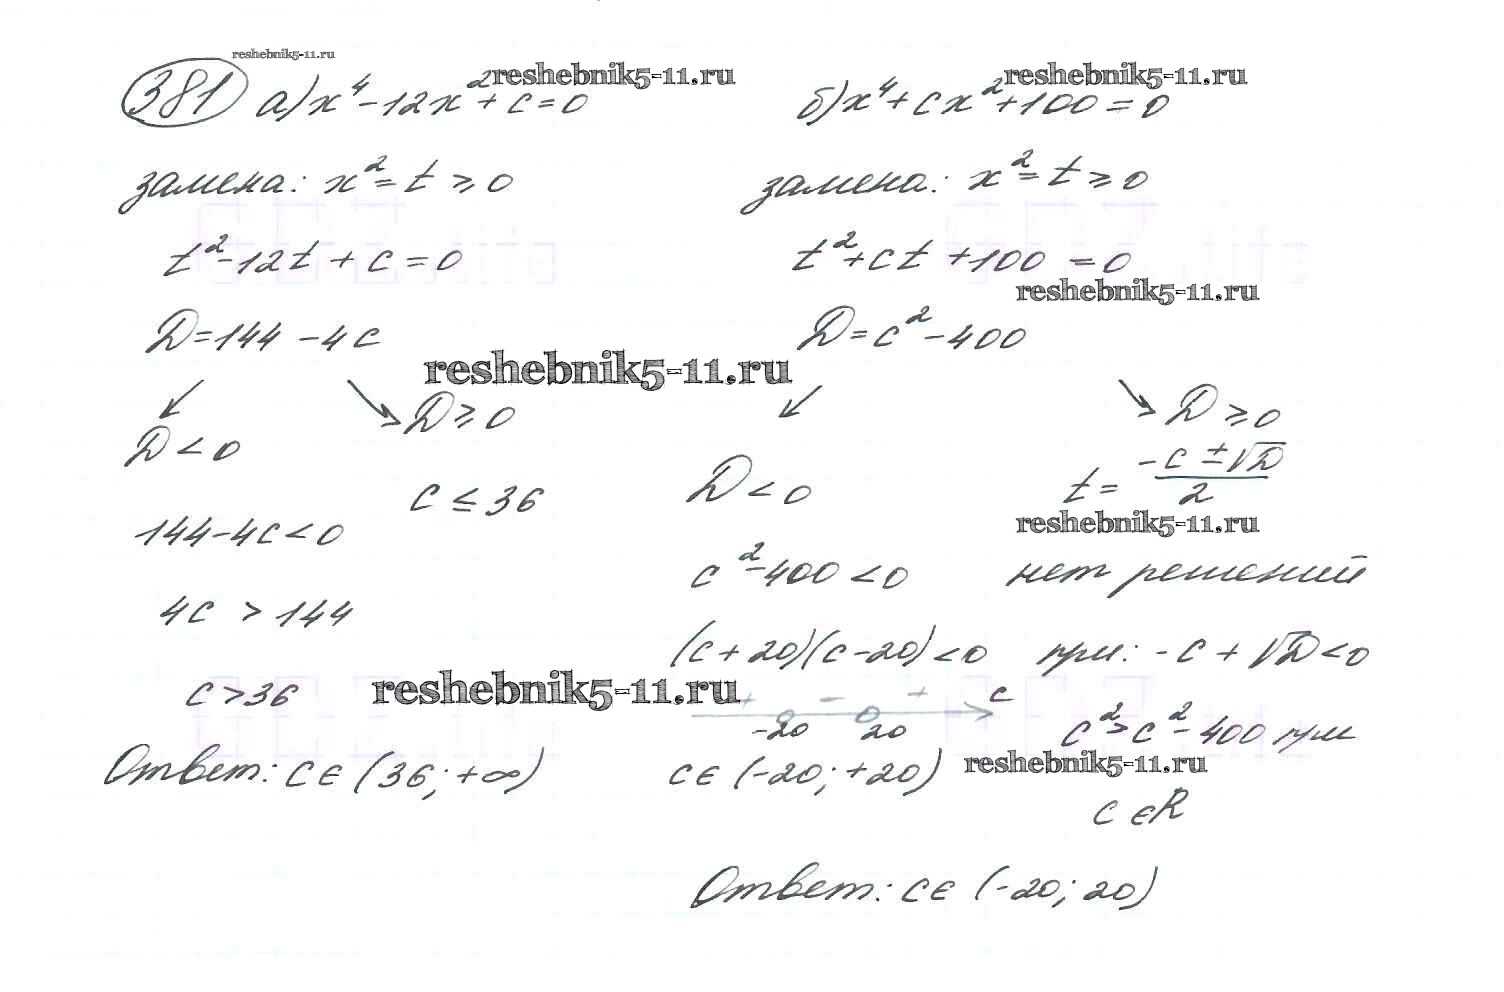 reshebnik5-11.ru
381 а) x⁴ - 12x² + c = 0
reshebnik5-11.ru
замена: x² = t ≥ 0
t² - 12t + c = 0
D = 144 - 4c
reshebnik5-11.ru
↙ ↘
D < 0
D ≥ 0
144 - 4c < 0
c ≤ 36
4c > 144
c > 36
reshebnik5-11.ru
Ответ: c ∈ (36; +∞)
б) x⁴ + cx² + 100 = 0
reshebnik5-11.ru
замена: x² = t ≥ 0
t² + ct + 100 = 0
reshebnik5-11.ru
D = c² - 400
↙ ↘
D < 0
c² - 400 < 0
(c + 20)(c - 20) < 0
+ - + c
-20 20
c ∈ (-20; +20)
D ≥ 0
t = (-c ± √D)/2
reshebnik5-11.ru
нет решений
при: -c + √D < 0
c² > c² - 400 при
reshebnik5-11.ru
c ∈ R
Ответ: c ∈ (-20; 20)